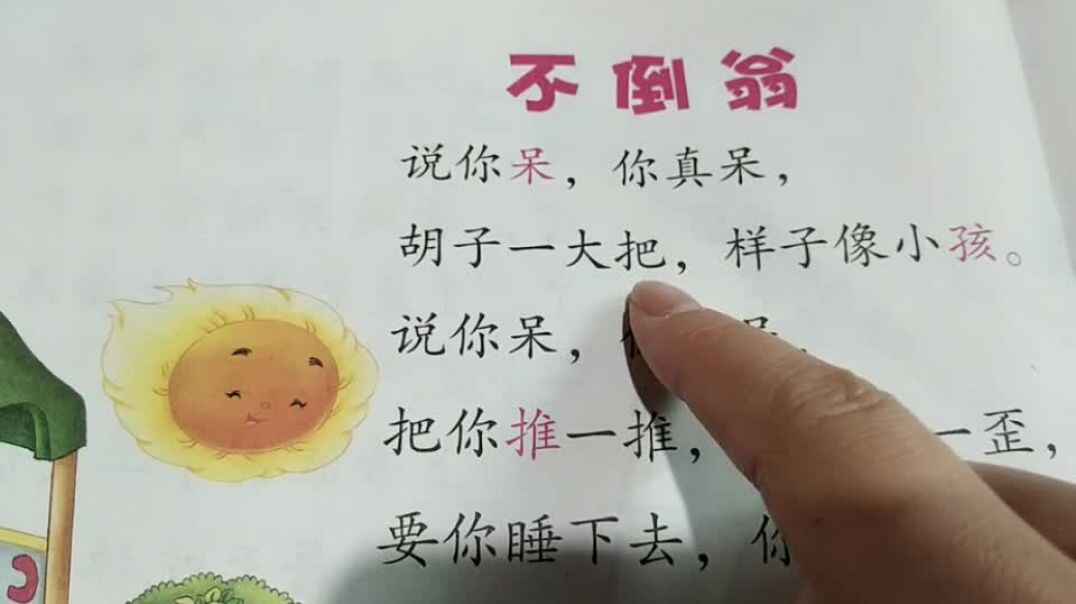 不倒翁
说你呆，你真呆，
胡子一大把，样子像小孩。
说你呆，
把你推一推，一歪，
要你睡下去，你